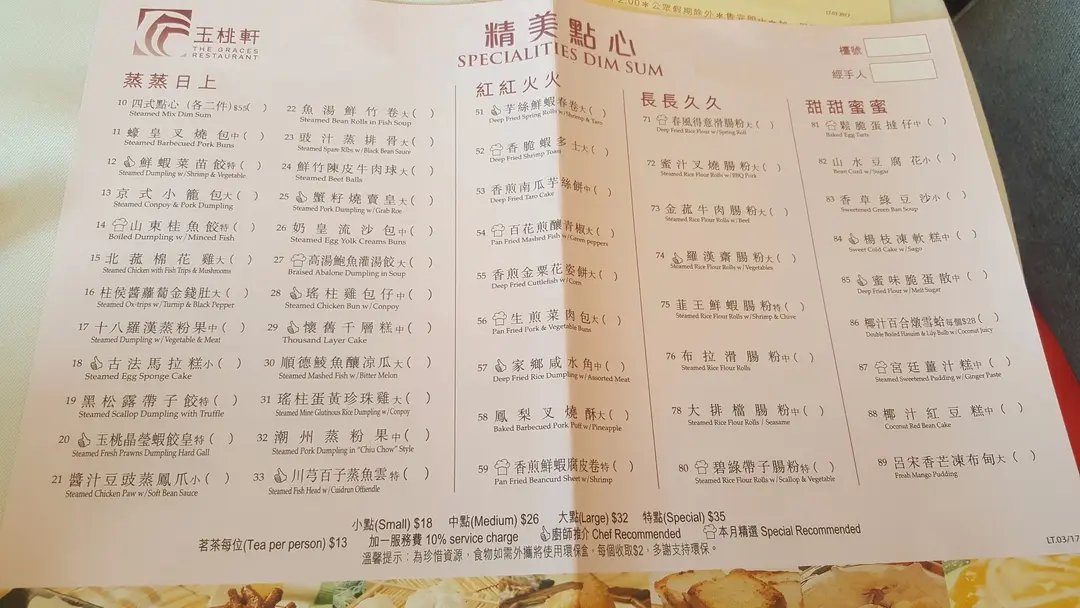 2.00*公眾假期除外*
玉桃軒
THE GRACES
RESTAURANT
精美點心
SPECIALITIES DIM SUM
檯號
經手人
蒸蒸日上
10 四式點心 (各二件)$55( )
Steamed Mix Dim Sum
11 蠔皇叉燒包中( )
Steamed Barbecued Pork Buns
12 鮮蝦菜苗餃特( )
Steamed Dumpling w/Shrimp & Vegetable
13 京式小籠包大( )
Steamed Conpoy & Pork Dumpling
14 山東桂魚餃特( )
Boiled Dumpling w/Minced Fish
15 北菰棉花雞大( )
Steamed Chicken with Fish Trips & Mushrooms
16 柱侯醬蘿蔔金錢肚大( )
Steamed Ox-trips w/Turnip & Black Pepper
17 十八羅漢蒸粉果中( )
Steamed Dumpling w/Vegetable & Meat
18 古法馬拉糕小( )
Steamed Egg Sponge Cake
19 黑松露帶子餃特( )
Steamed Scallop Dumpling with Truffle
20 玉桃晶瑩蝦餃皇特( )
Steamed Fresh Prawns Dumpling Hard Gall
21 醬汁豆豉蒸鳳爪小( )
Steamed Chicken Paw w/Soft Bean Sauce
22 魚湯鮮竹卷大( )
Steamed Bean Rolls in Fish Soup
23 豉汁蒸排骨大( )
Steamed Spare Ribs w/Black Bean Sauce
24 鮮竹陳皮牛肉球大( )
Steamed Beef Balls
25 蟹籽燒賣皇大( )
Steamed Pork Dumpling w/Grab Roe
26 奶皇流沙包中( )
Steamed Egg Yolk Creams Buns
27 高湯鮑魚灌湯餃大( )
Braised Abalone Dumpling in Soup
28 瑤柱雞包仔中( )
Steamed Chicken Bun w/Conpoy
29 懷舊千層糕中( )
Thousand Layer Cake
30 順德鯪魚釀涼瓜大( )
Steamed Mashed Fish w/Bitter Melon
31 瑤柱蛋黃珍珠雞大( )
Steamed Mine Glutinous Rice Dumpling w/Conpoy
32 潮州蒸粉果中( )
Steamed Pork Dumpling in "Chiu Chow" Style
33 川芎百子蒸魚雲特( )
Steamed Fish Head w/Cuidrun Offiendle
紅紅火火
51 芋絲鮮蝦春卷大( )
Deep Fried Spring Rolls w/Shrimp & Taro
52 香脆蝦多士大( )
Deep Fried Shrimp Toast
53 香煎南瓜芋絲餅中( )
Deep Fried Taro Cake
54 百花煎釀青椒大( )
Pan Fried Mashed Fish w/Green peppers
55 香煎金粟花姿餅大( )
Deep Fried Cuttlefish w/Corn
56 生煎菜肉包大( )
Pan Fried Pork & Vegetable Buns
57 家鄉咸水角中( )
Deep Fried Rice Dumpling w/Assorted Meat
58 鳳梨叉燒酥大( )
Baked Barbecued Pork Puff w/Pineapple
59 香煎鮮蝦腐皮卷特( )
Pan Fried Beancurd Sheet w/Shrimp
長長久久
71 春風得意滑腸粉大( )
Deep Fried Rice Flour w/Spring Roll
72 蜜汁叉燒腸粉大( )
Steamed Rice Flour Rolls w/BBQ Pork
73 金菰牛肉腸粉大( )
Steamed Rice Flour Rolls w/Beef
74 羅漢齋腸粉大( )
Steamed Rice Flour Rolls w/Vegetables
75 韮王鮮蝦腸粉特( )
Steamed Rice Flour Rolls w/Shrimp & Chive
76 布拉滑腸粉中( )
Steamed Rice Flour Rolls
78 大排檔腸粉中( )
Steamed Rice Flour Rolls / Seasame
80 碧綠帶子腸粉特( )
Steamed Rice Flour Rolls w/Scallop & Vegetable
甜甜蜜蜜
81 鬆脆蛋撻仔中( )
Baked Egg Tarts
82 山水豆腐花小( )
Bean Curd w/Sugar
83 香草綠豆沙小( )
Sweetened Green Ban Soup
84 楊枝凍軟糕中( )
Sweet Cold Cake w/Sago
85 蜜味脆蛋散中( )
Deep Fried Flour w/Melt Sugar
86 椰汁百合燉雪蛤每個$28( )
Double Boiled Hausim & Lily Bulb w/Coconut Juicy
87 宮廷薑汁糕中( )
Steamed Sweetened Pudding w/Ginger Paste
88 椰汁紅豆糕中( )
Coconut Red Bean Cake
89 呂宋香芒凍布甸大( )
Fresh Mango Pudding
小點(Small) $18 中點(Medium) $26 大點(Large) $32 特點(Special) $35
茗茶每位(Tea per person) $13 加一服務費 10% service charge 廚師推介 Chef Recommended 本月精選 Special Recommended
溫馨提示：為珍惜資源，食物如需外攜將使用環保盒，每個收取$2，多謝支持環保。
LT.03/17